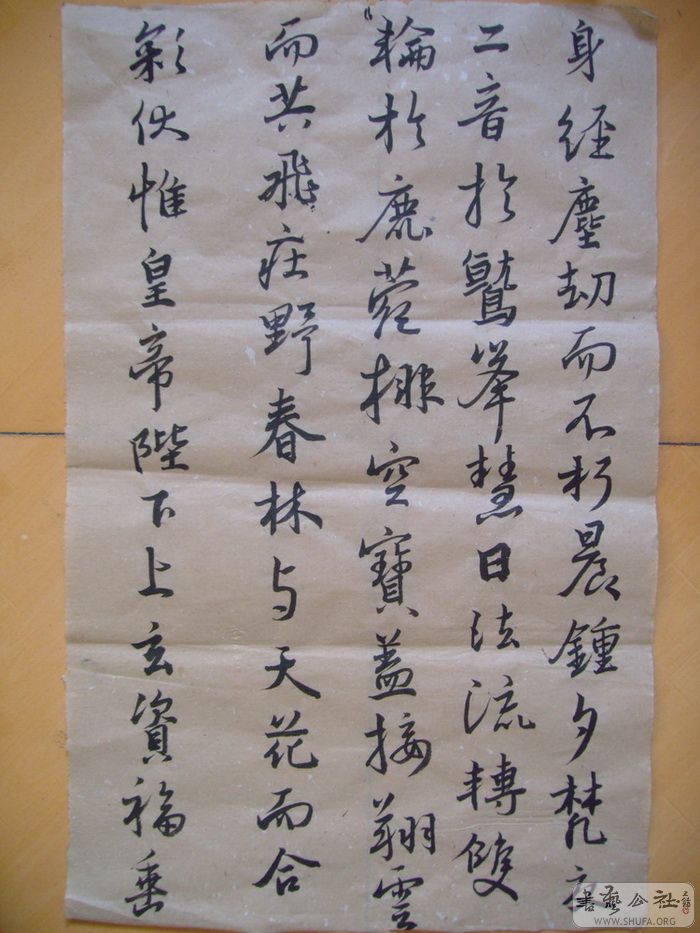 身經塵劫而不朽晨鍾夕梵交
二音於鷲峯慧日法流轉雙
輪於鹿菀排空寶蓋接翔雲
而共飛庄野春林与天花而合
彩伏惟皇帝陛下上玄資福垂
書藝公社
WWW.SHUFA.ORG